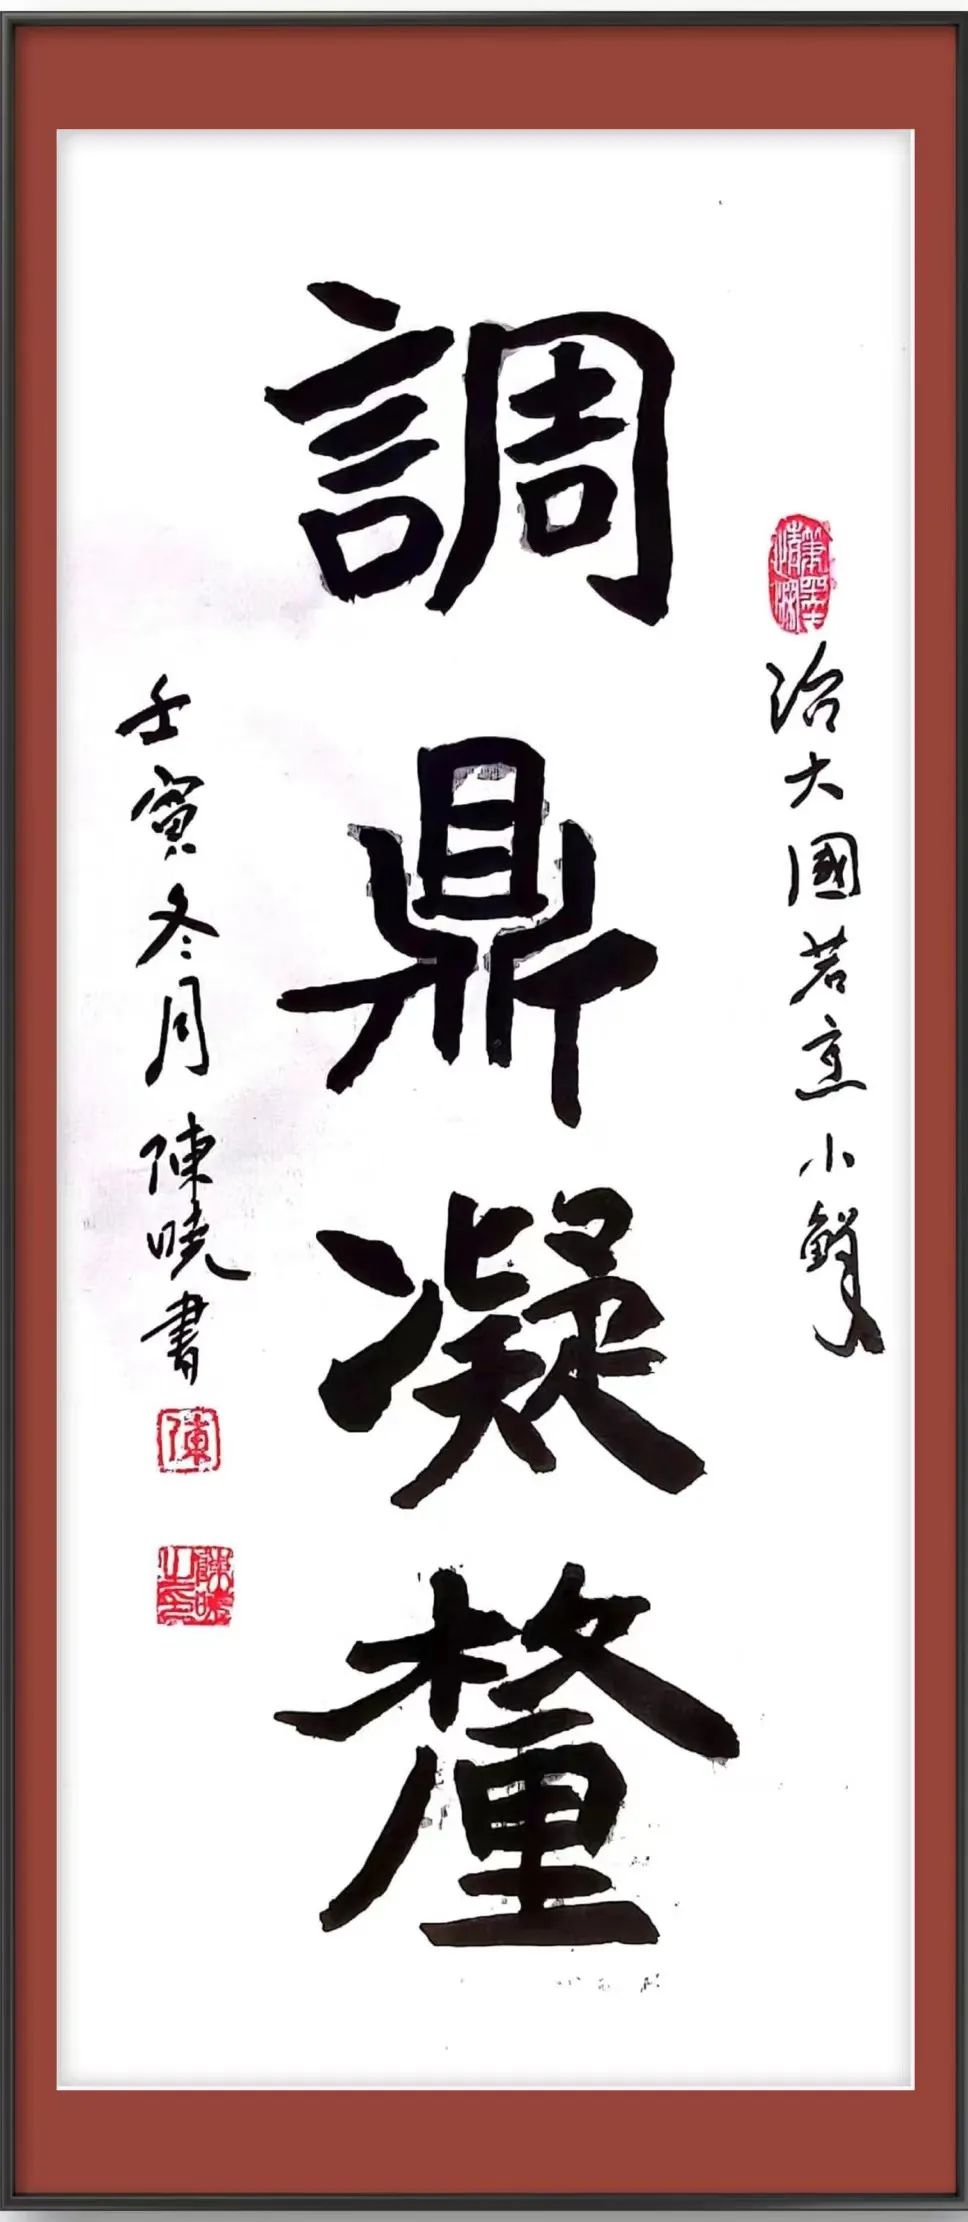 治大國若烹小鮮
調鼎凝釐
壬寅冬月陳曉書
陳